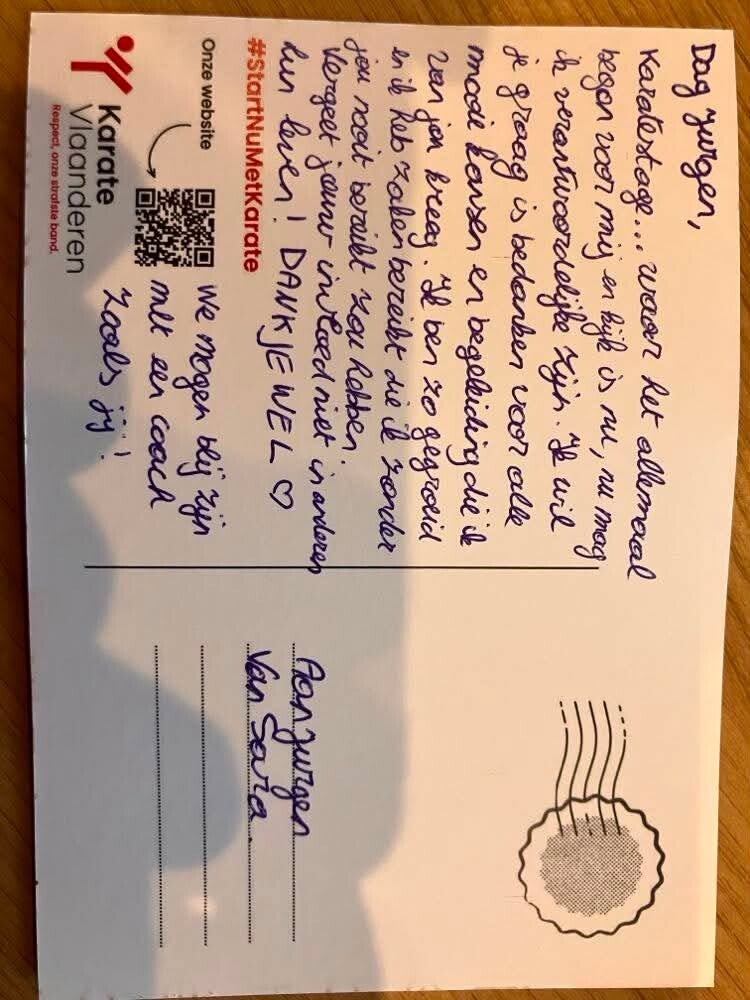 Dag Jurgen,
Karatestage... waar het allemaal
begon voor mij en kijk is nu, nu mag
ik verantwoordelijke zijn. Ik wil
je graag is bedanken voor alle
mooie kansen en begeleiding die ik
van jou kreeg. Ik ben zo gegroeid
en ik heb zaken bereikt die ik zonder
jou nooit bereikt zou hebben.
Vergeet jouw invloed niet in anderen
hun leven! DANKJEWEL ♡
#StartNuMetKarate
Onze website
We mogen blij zijn
met een coach
zoals jij!
Karate
Vlaanderen
Respect, onze strafste band.
Aan Jurgen
Van Sara